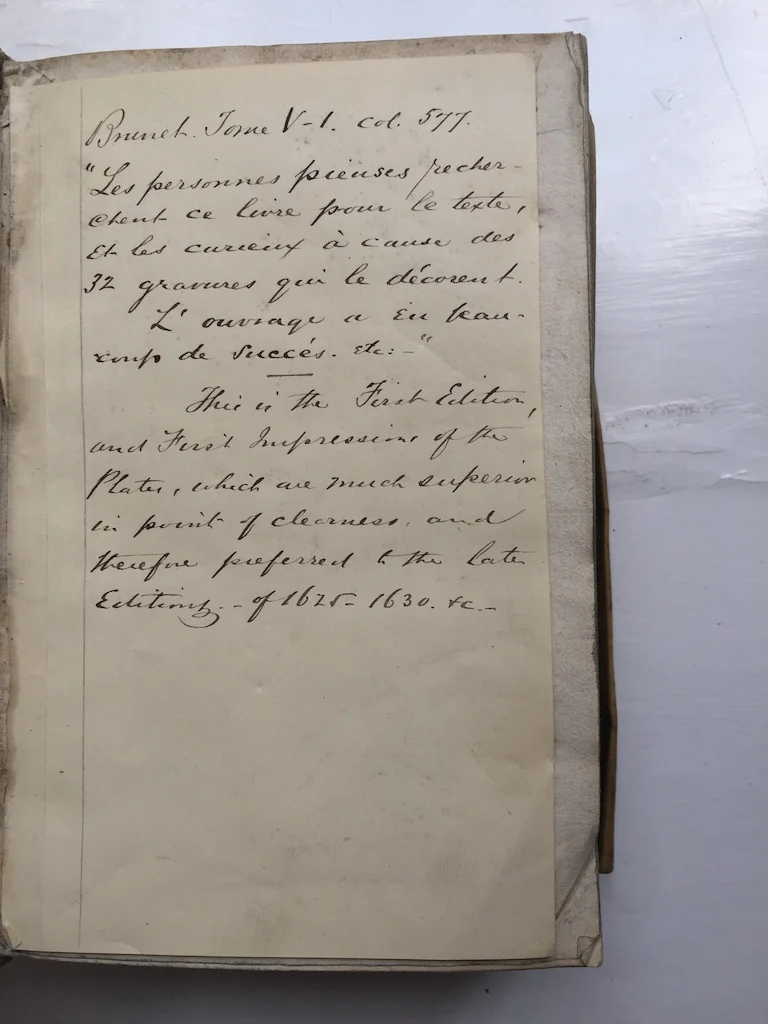 Brunet. Tome V-1. col. 577.
"Les personnes pieuses recher-
chent ce livre pour le texte,
et les curieux à cause des
32 gravures qui le décorent.
L'ouvrage a eu beau-
coup de succés. etc:-"
This is the First Edition,
and First Impressions of the
Plates, which are much superior
in point of clearness, and
therefore preferred to the later
Editions. - of 1625- 1630. &c.-